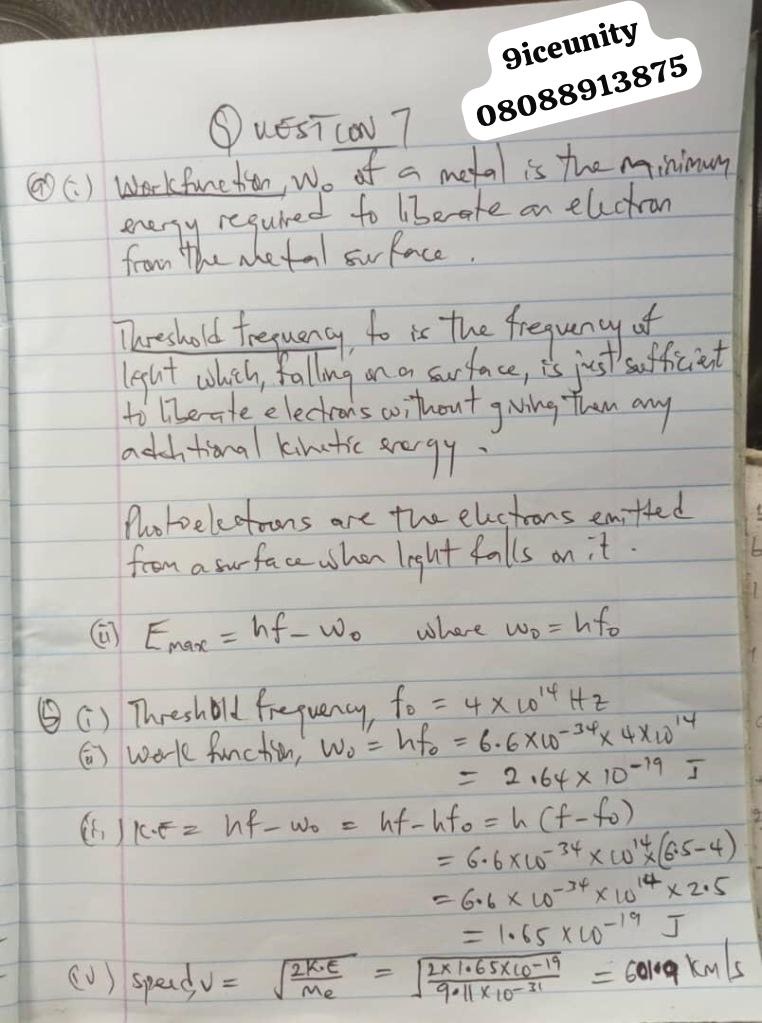 9iceunity
08088913875
QUESTION 7
(a) (i.) Workfunction, W₀ of a metal is the minimum
energy required to liberate an electron
from the metal surface.
Threshold frequency, fo is the frequency of
light which, falling on a surface, is just sufficient
to liberate electrons without giving them any
additional kinetic energy.
Photoelectrons are the electrons emitted
from a surface when light falls on it.
(ii) Emax = hf - W₀ where W₀ = hf₀
(b) (i) Threshold frequency, f₀ = 4 × 10¹⁴ Hz
(ii) Work function, W₀ = hf₀ = 6.6×10⁻³⁴ × 4×10¹⁴
= 2.64 × 10⁻¹⁹ J
K.E = hf - W₀ = hf - hf₀ = h (f - f₀)
= 6.6 × 10⁻³⁴ × 10¹⁴ × (6.5 - 4)
= 6.6 × 10⁻³⁴ × 10¹⁴ × 2.5
= 1.65 × 10⁻¹⁹ J
(iv) speed, v = √(2K.E / Me) = √(2 × 1.65 × 10⁻¹⁹ / 9.11 × 10⁻³¹) = 601.9 Km/s